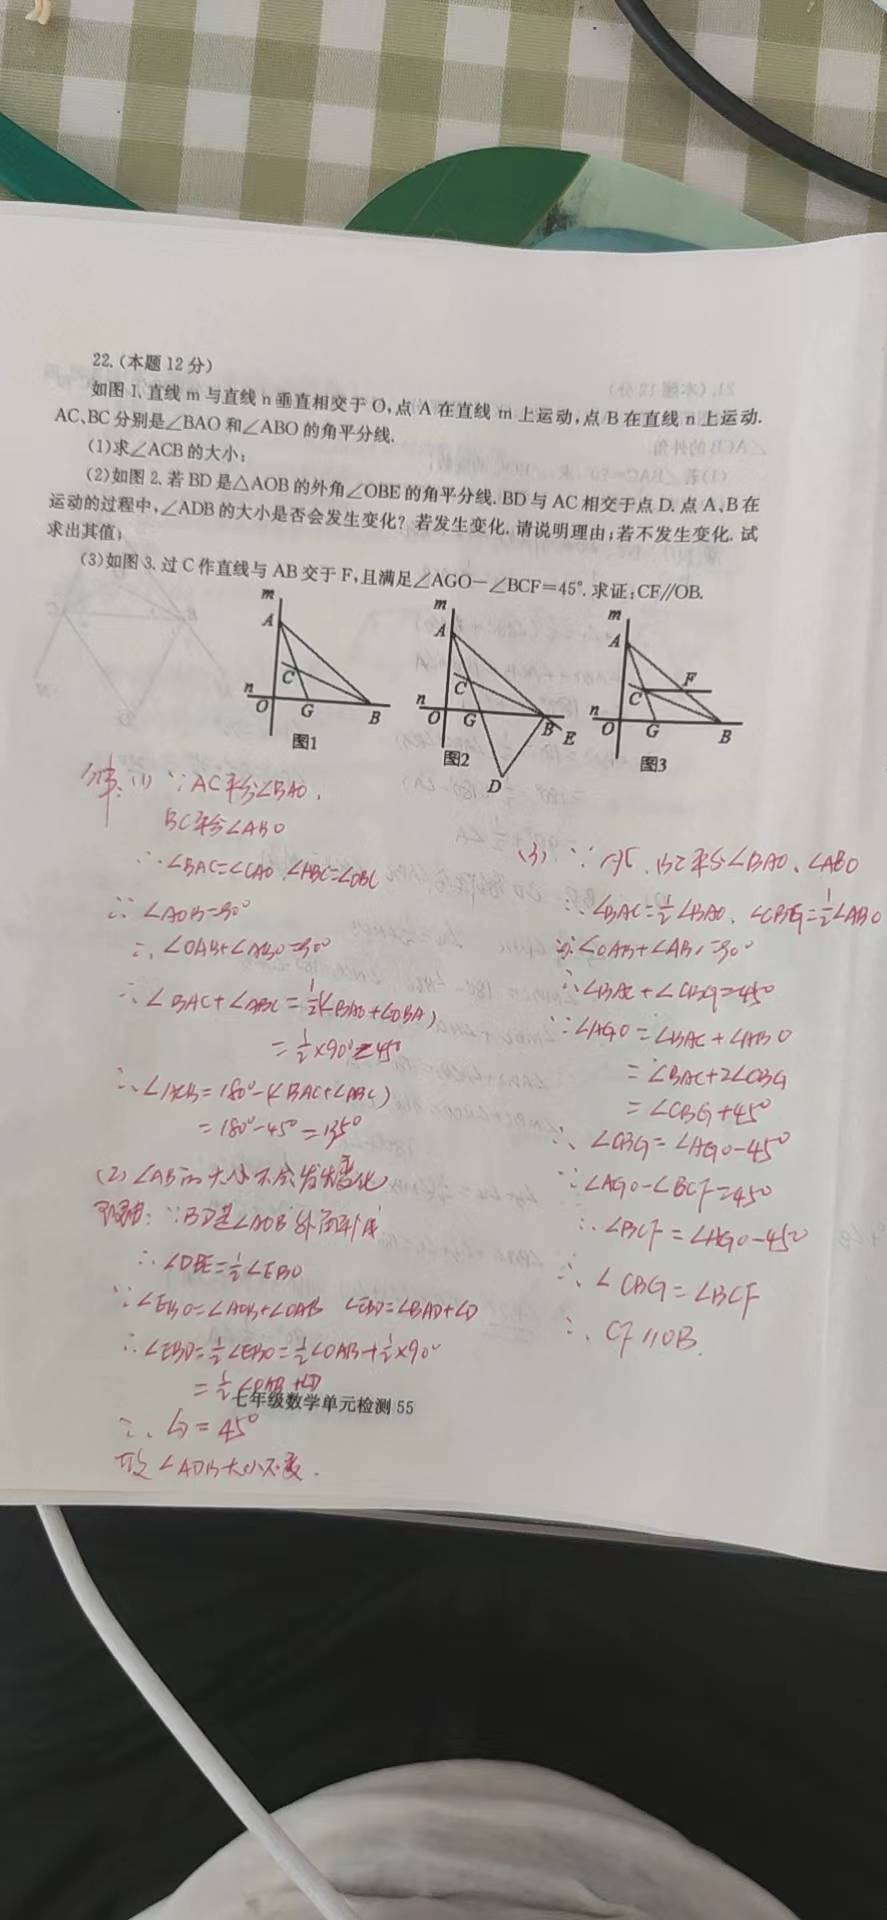 22.(本题12分)
如图1,直线m与直线n垂直相交于O,点A在直线m上运动,点B在直线n上运动.
AC、BC分别是∠BAO和∠ABO的角平分线.
(1)求∠ACB的大小;
(2)如图2,若BD是△AOB的外角∠OBE的角平分线.BD与AC相交于点D.点A、B在
运动的过程中,∠ADB的大小是否会发生变化?若发生变化.请说明理由;若不发生变化.试
求出其值;
(3)如图3.过C作直线与AB交于F,且满足∠AGO-∠BCF=45°.求证:CF//OB.
m
A
C
n
O
G
B
图1
m
A
C
n
O
G
B
E
D
图2
m
A
C
F
n
O
G
B
图3
解:(1)∵AC平分∠BAO,
BC平分∠ABO
∴∠BAC=∠CAO ∠ABC=∠OBC
∵∠AOB=90°
∴∠OAB+∠ABO=90°
∴∠BAC+∠ABC=1/2(∠BAO+∠OBA)
=1/2×90°=45°
∴∠ACB=180°-(∠BAC+∠ABC)
=180°-45°=135°
大小不会发生变化
∵BD是∠AOB外角平
∴∠DBE=1/2∠EBO
∵∠EBO=∠AOB+∠OAB ∠EBD=∠BAD+∠D
∴∠EBD=1/2∠EBO=1/2∠OAB+1/2×90°
=1/2∠OAB+∠D
七年级数学单元检测 55
∴∠D=45°
故∠ADB大小不变.
(3)∵AC、BC平分∠BAO、∠ABO
∴∠BAC=1/2∠BAO、∠CBG=1/2∠ABO
∠OAB+∠ABO=90°
∴∠BAC+∠CBG=45°
∵∠AGO=∠BAC+∠ABO
=∠BAC+2∠CBG
=∠CBG+45°
∴∠CBG=∠AGO-45°
∵∠AGO-∠BCF=45°
∴∠BCF=∠AGO-45°
∴∠CBG=∠BCF
∴CF//OB.